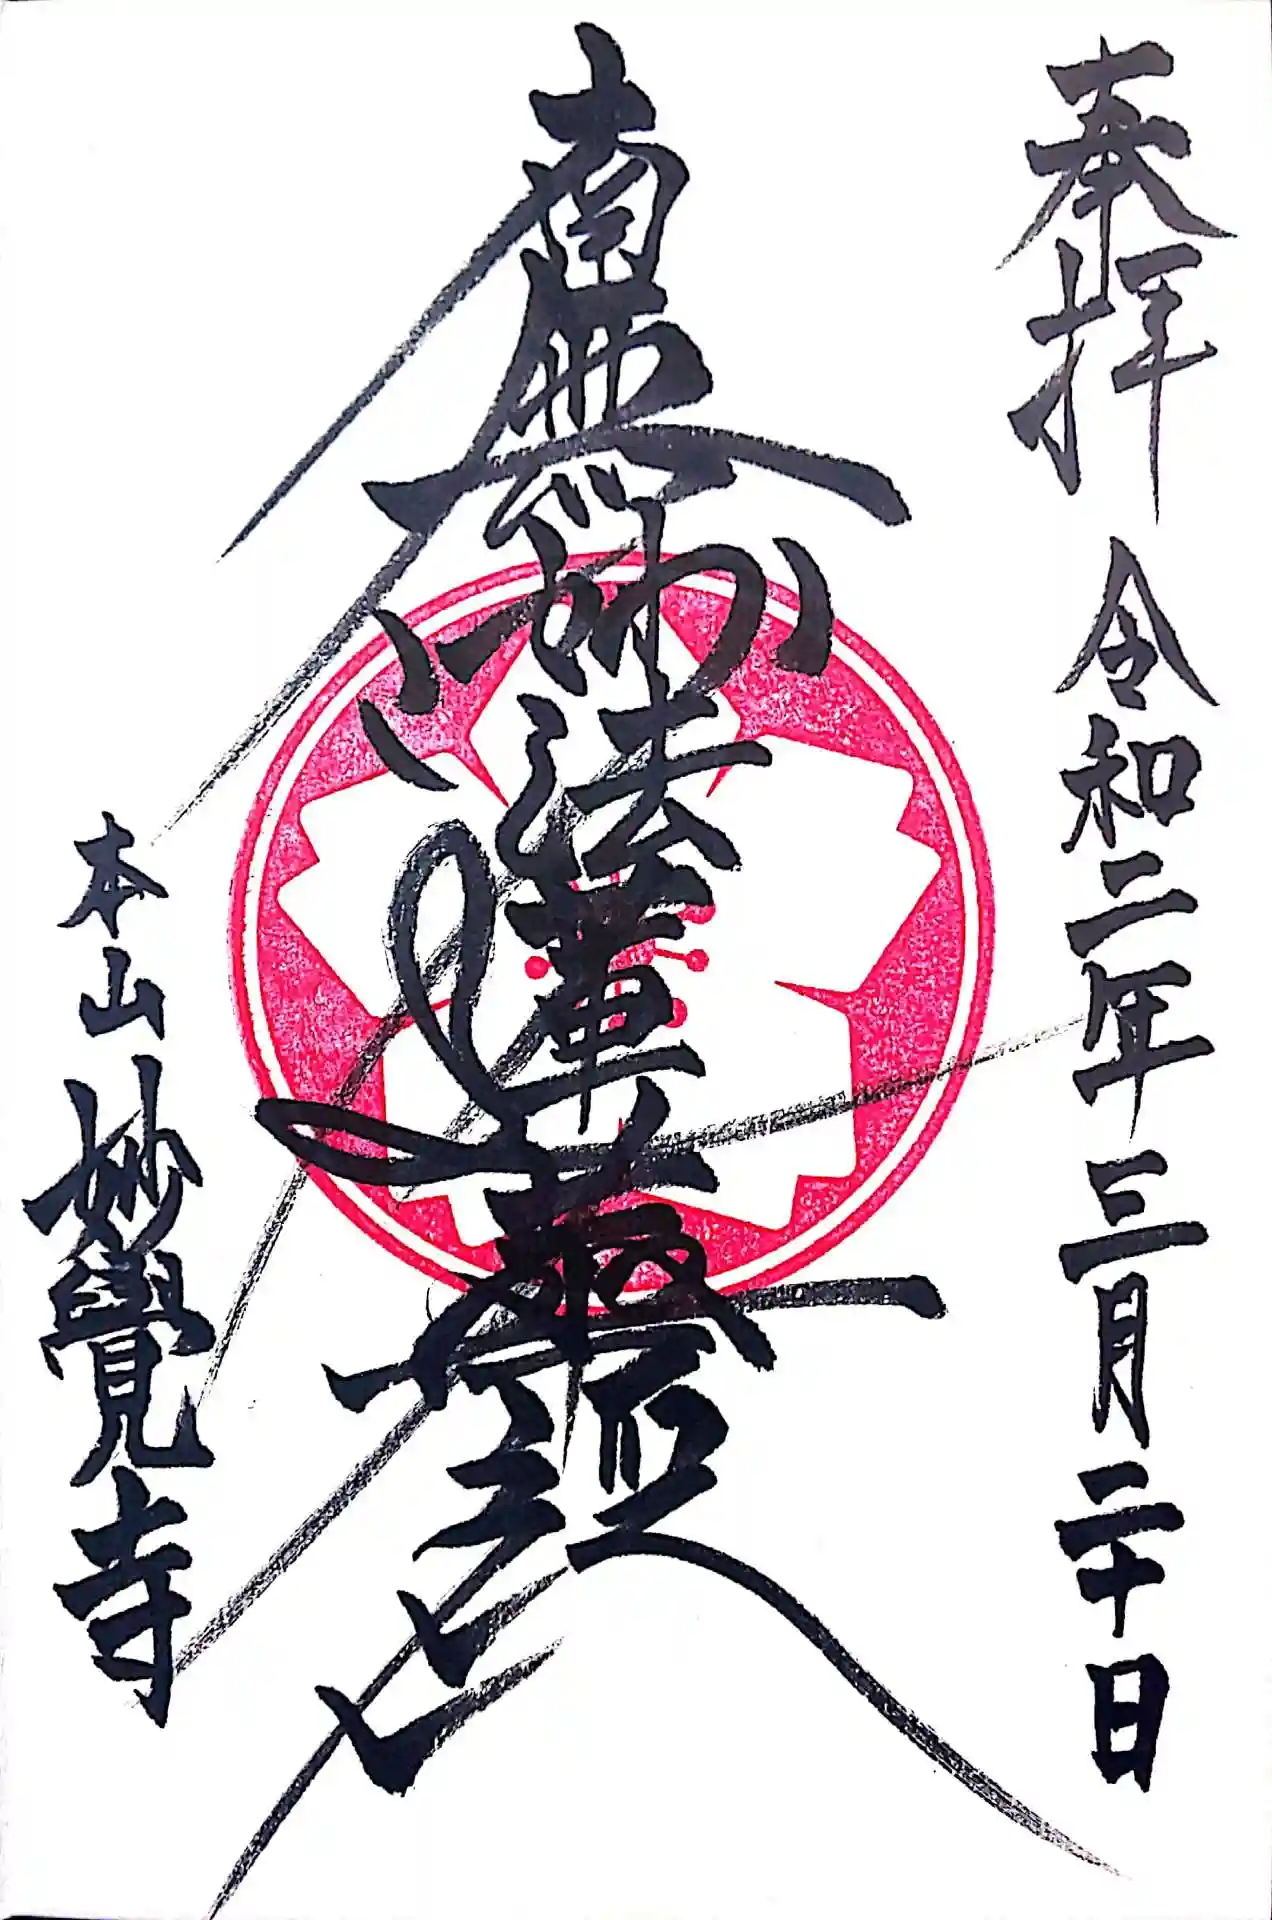 奉拝
令和二年三月二十日
南無妙法蓮華經
本山
妙覺寺